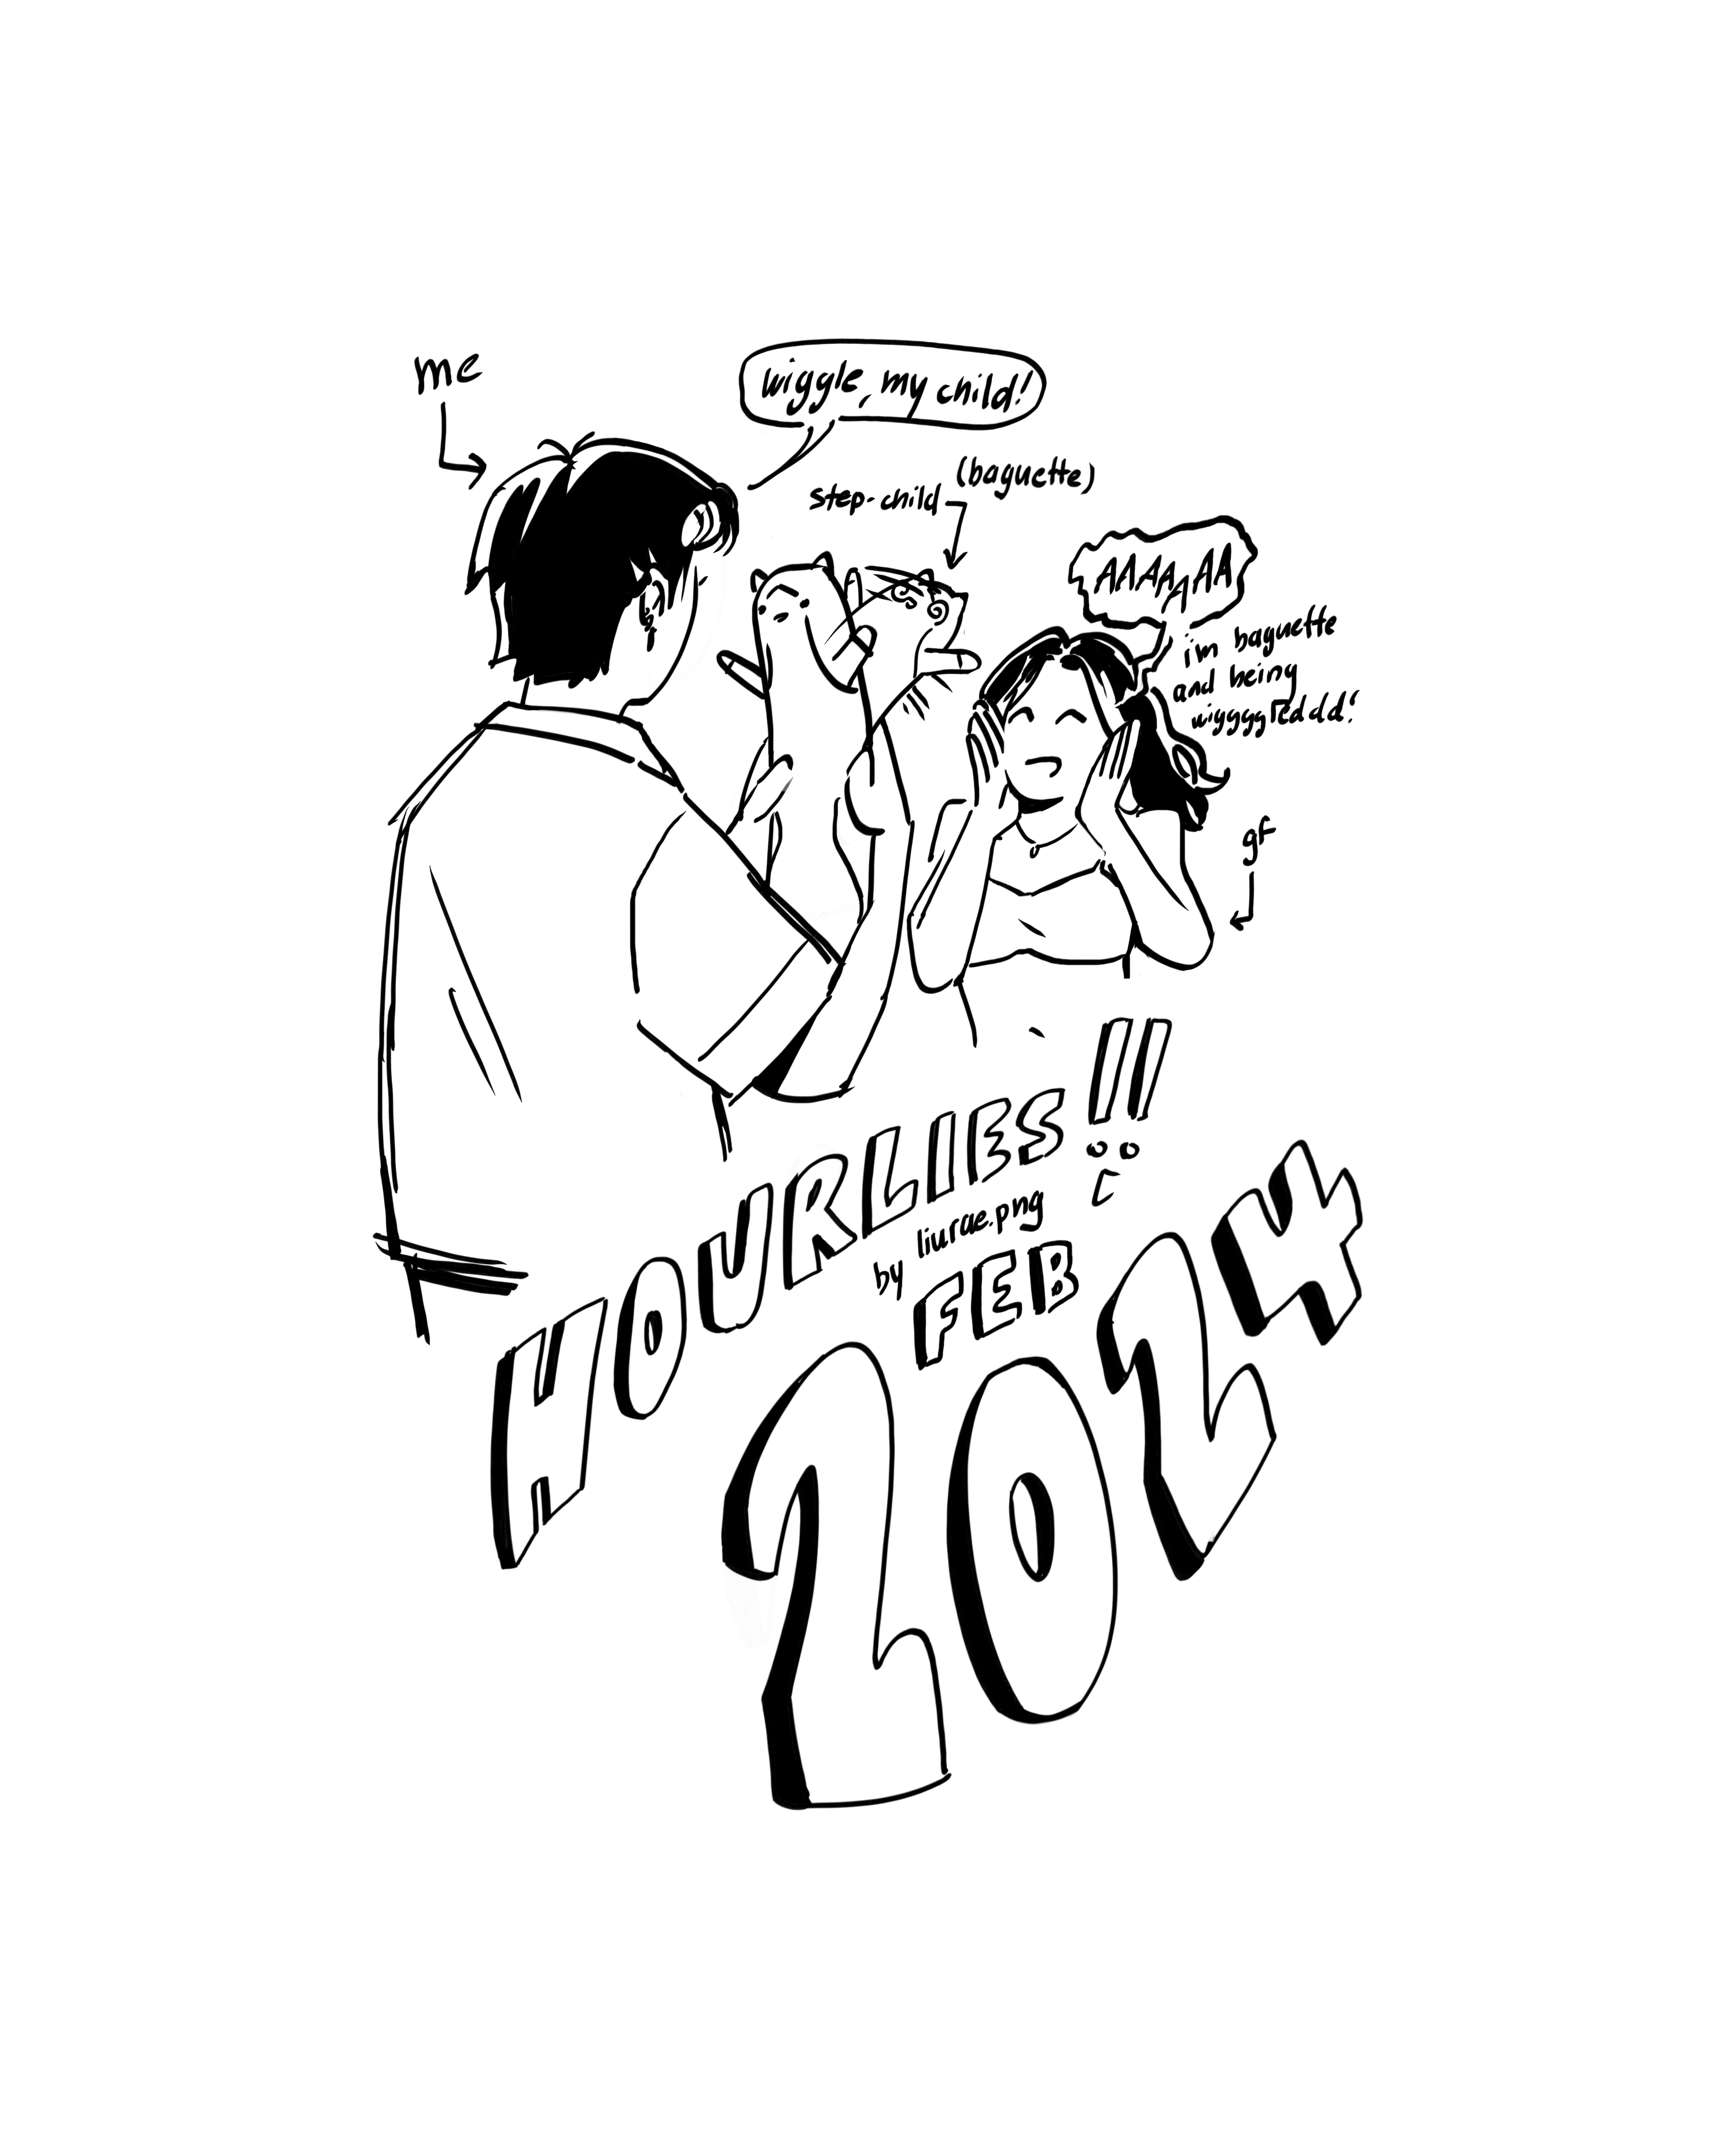 me
wiggle, my child!
(baguette)
step-child
AAAAAAA
i'm baguette
and being
wiggggledddd!
gf
HOURLIES!!
by liurae.png
FEB
2024